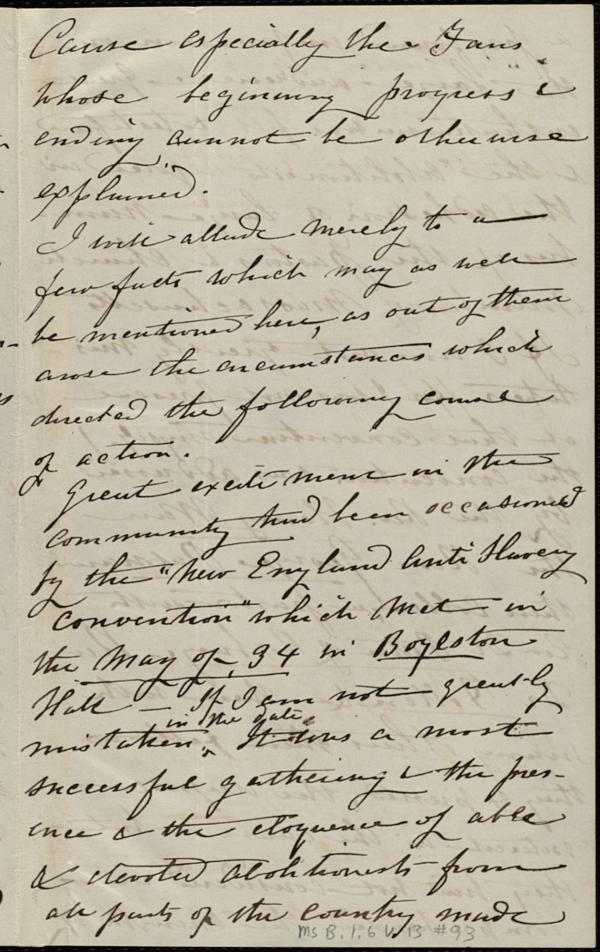 Cause especially the Fairs
whose beginning progress &
ending cannot be otherwise
explained.
I will allude merely to a
few facts which may as well
be mentioned here, as out of them
arose the circumstances which
directed the following course
of action.
Great excitement in the
community had been occasioned
by the "New England Anti Slavery
Convention" which met in
the May of 34 in Boylston
Hall — If I am not greatly
in the date
mistaken. It was a most
successful gathering & the pres-
ence & the eloquence of able
& devoted abolitionists from
all parts of the country made
Ms B.1.6 V.13 #93